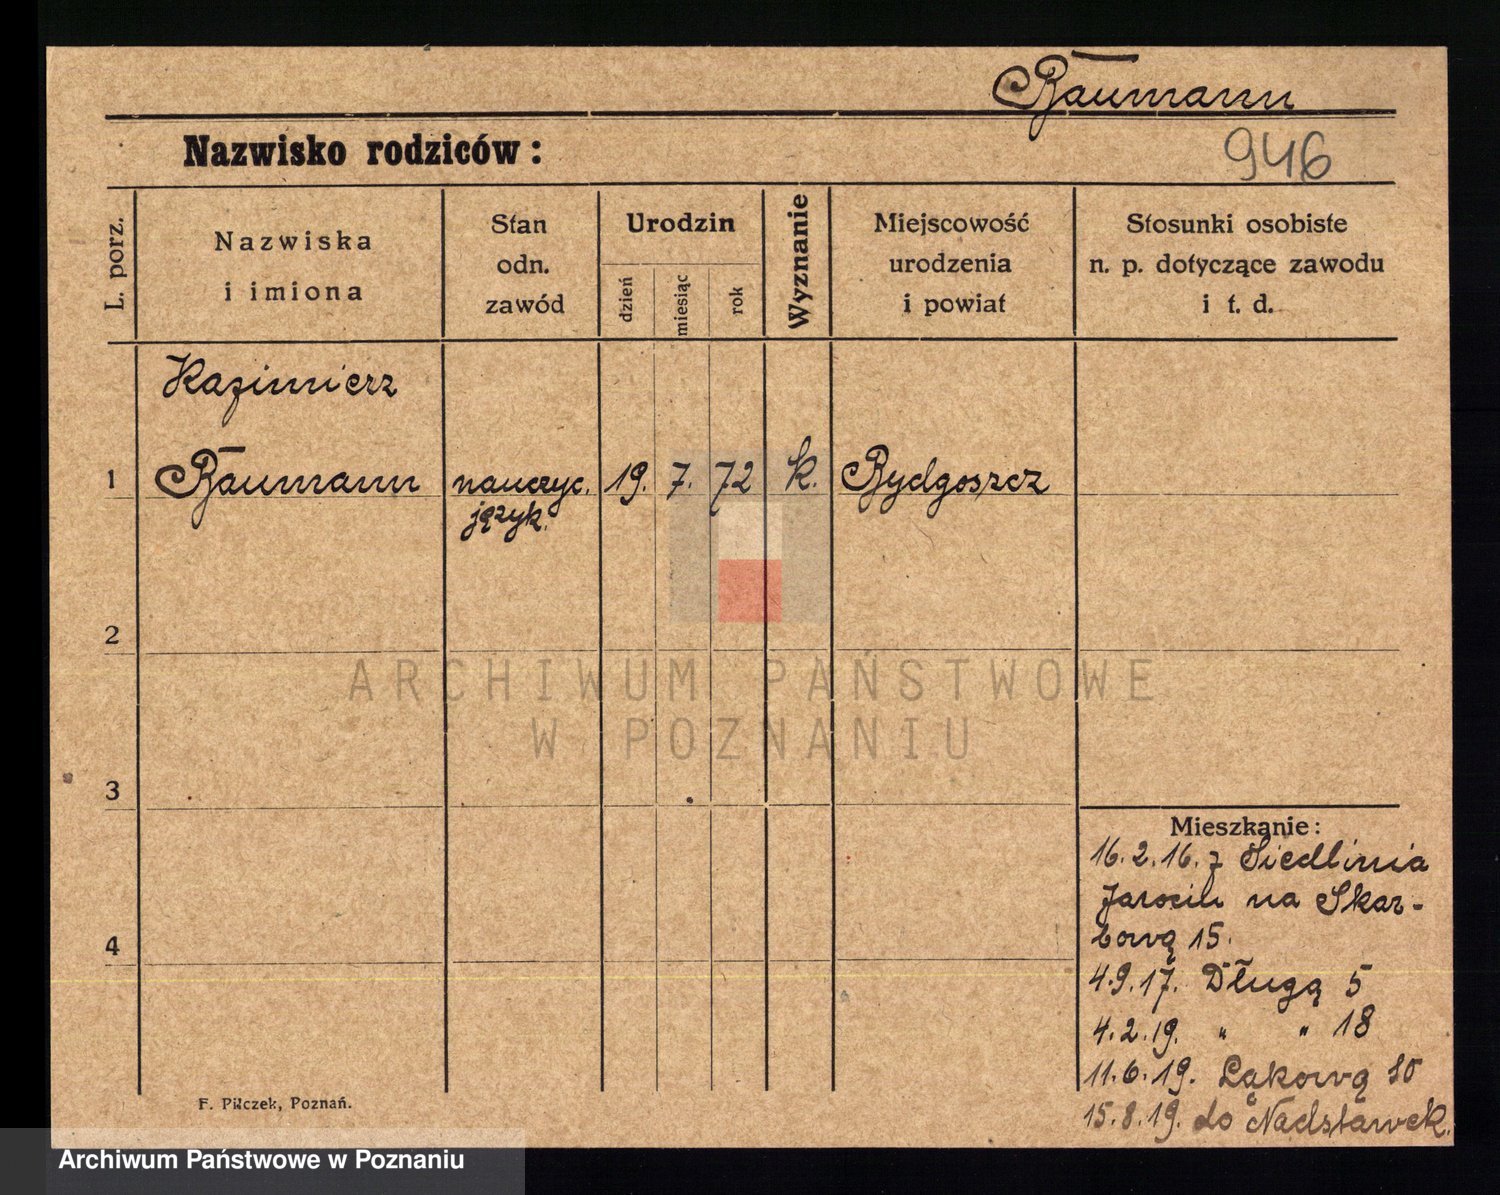 Baumann
Nazwisko rodziców:
946
L. porz.
Nazwiska
i imiona
Stan
odn.
zawód
Urodzin
dzień
miesiąc
rok
Wyznanie
Miejscowość
urodzenia
i powiat
Stosunki osobiste
n. p. dotyczące zawodu
i t. d.
Kazimierz
1 Baumann nauczyc. 19. 7. 72 k. Bydgoszcz
język.
2
ARCHIWUM PAŃSTWOWE
W POZNANIU
3
Mieszkanie:
16.2.16. z Siedlinia
Jarocin na Skar-
bową 15.
4
4.9.17. Długą 5
4.2.19. " " 18
11.6.19. Łąkową
15.8.19. do Nadstawek.
F. Pilczek, Poznań.
Archiwum Państwowe w Poznaniu